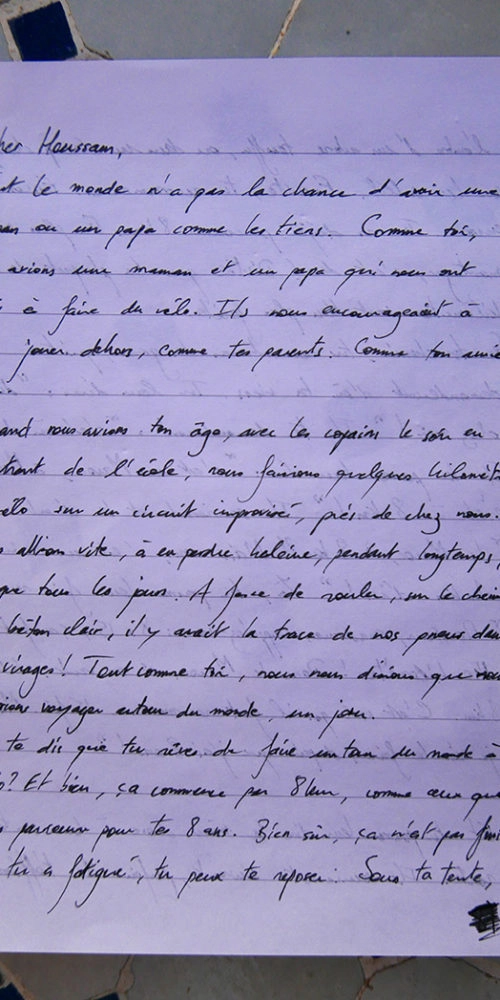 her Houssam,
t le monde n'a pas la chance d'avoir une
an ou un papa comme les tiens. Comme toi,
avions une maman et un papa qui nous ont
s à faire du vélo. Ils nous encourageaient à
jouer dehors, comme tes parents. Comme ton amie
and nous avions ton âge, avec les copains le soir en
trant de l'école, nous faisions quelques kilomèt
élo sur un circuit improvisé, près de chez nous.
s allions vite, à en perdre haleine, pendant longtemps,
que tous les jours. A force de rouler, sur le chem
béton clair, il y avait la trace de nos pneus dan
virages! Tout comme toi, nous nous disions que nou
rions voyager autour du monde, un jour.
te dis que tu rêves de faire un tour du monde à
o? Et bien, ça commence par 8 km, comme ceux que
s parcouru pour tes 8 ans. Bien sûr, ça n'est pas fini
tu a fatigué, tu peux te reposer. Sous ta tente,